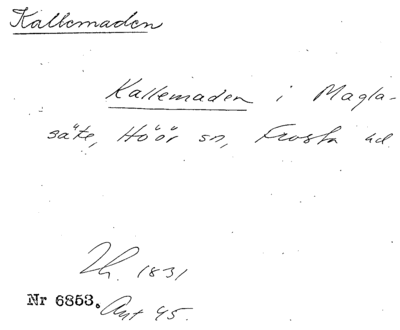 Kallemaden
Kallemaden i Magla-
säte, Höör sn, Frosta hd
1831
Nr 6853. Ant 45.